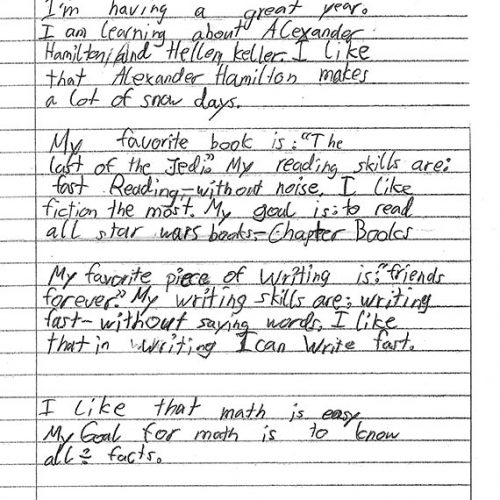 I'm having a great year.
I am learning about Alexander
Hamilton, and Hellen keller. I like
that Alexander Hamilton makes
a lot of snow days.
My favorite book is: "The
last of the Jedi." My reading skills are:
fast Reading-without noise. I like
fiction the most. My goal is: to read
all star wars books-Chapter Books
My favorite piece of Writing is: "friends
forever." My writing skills are: writing
fast-without saying words. I like
that in writing I can Write fast.
I like that math is easy
My Goal for math is to know
all ÷ facts.